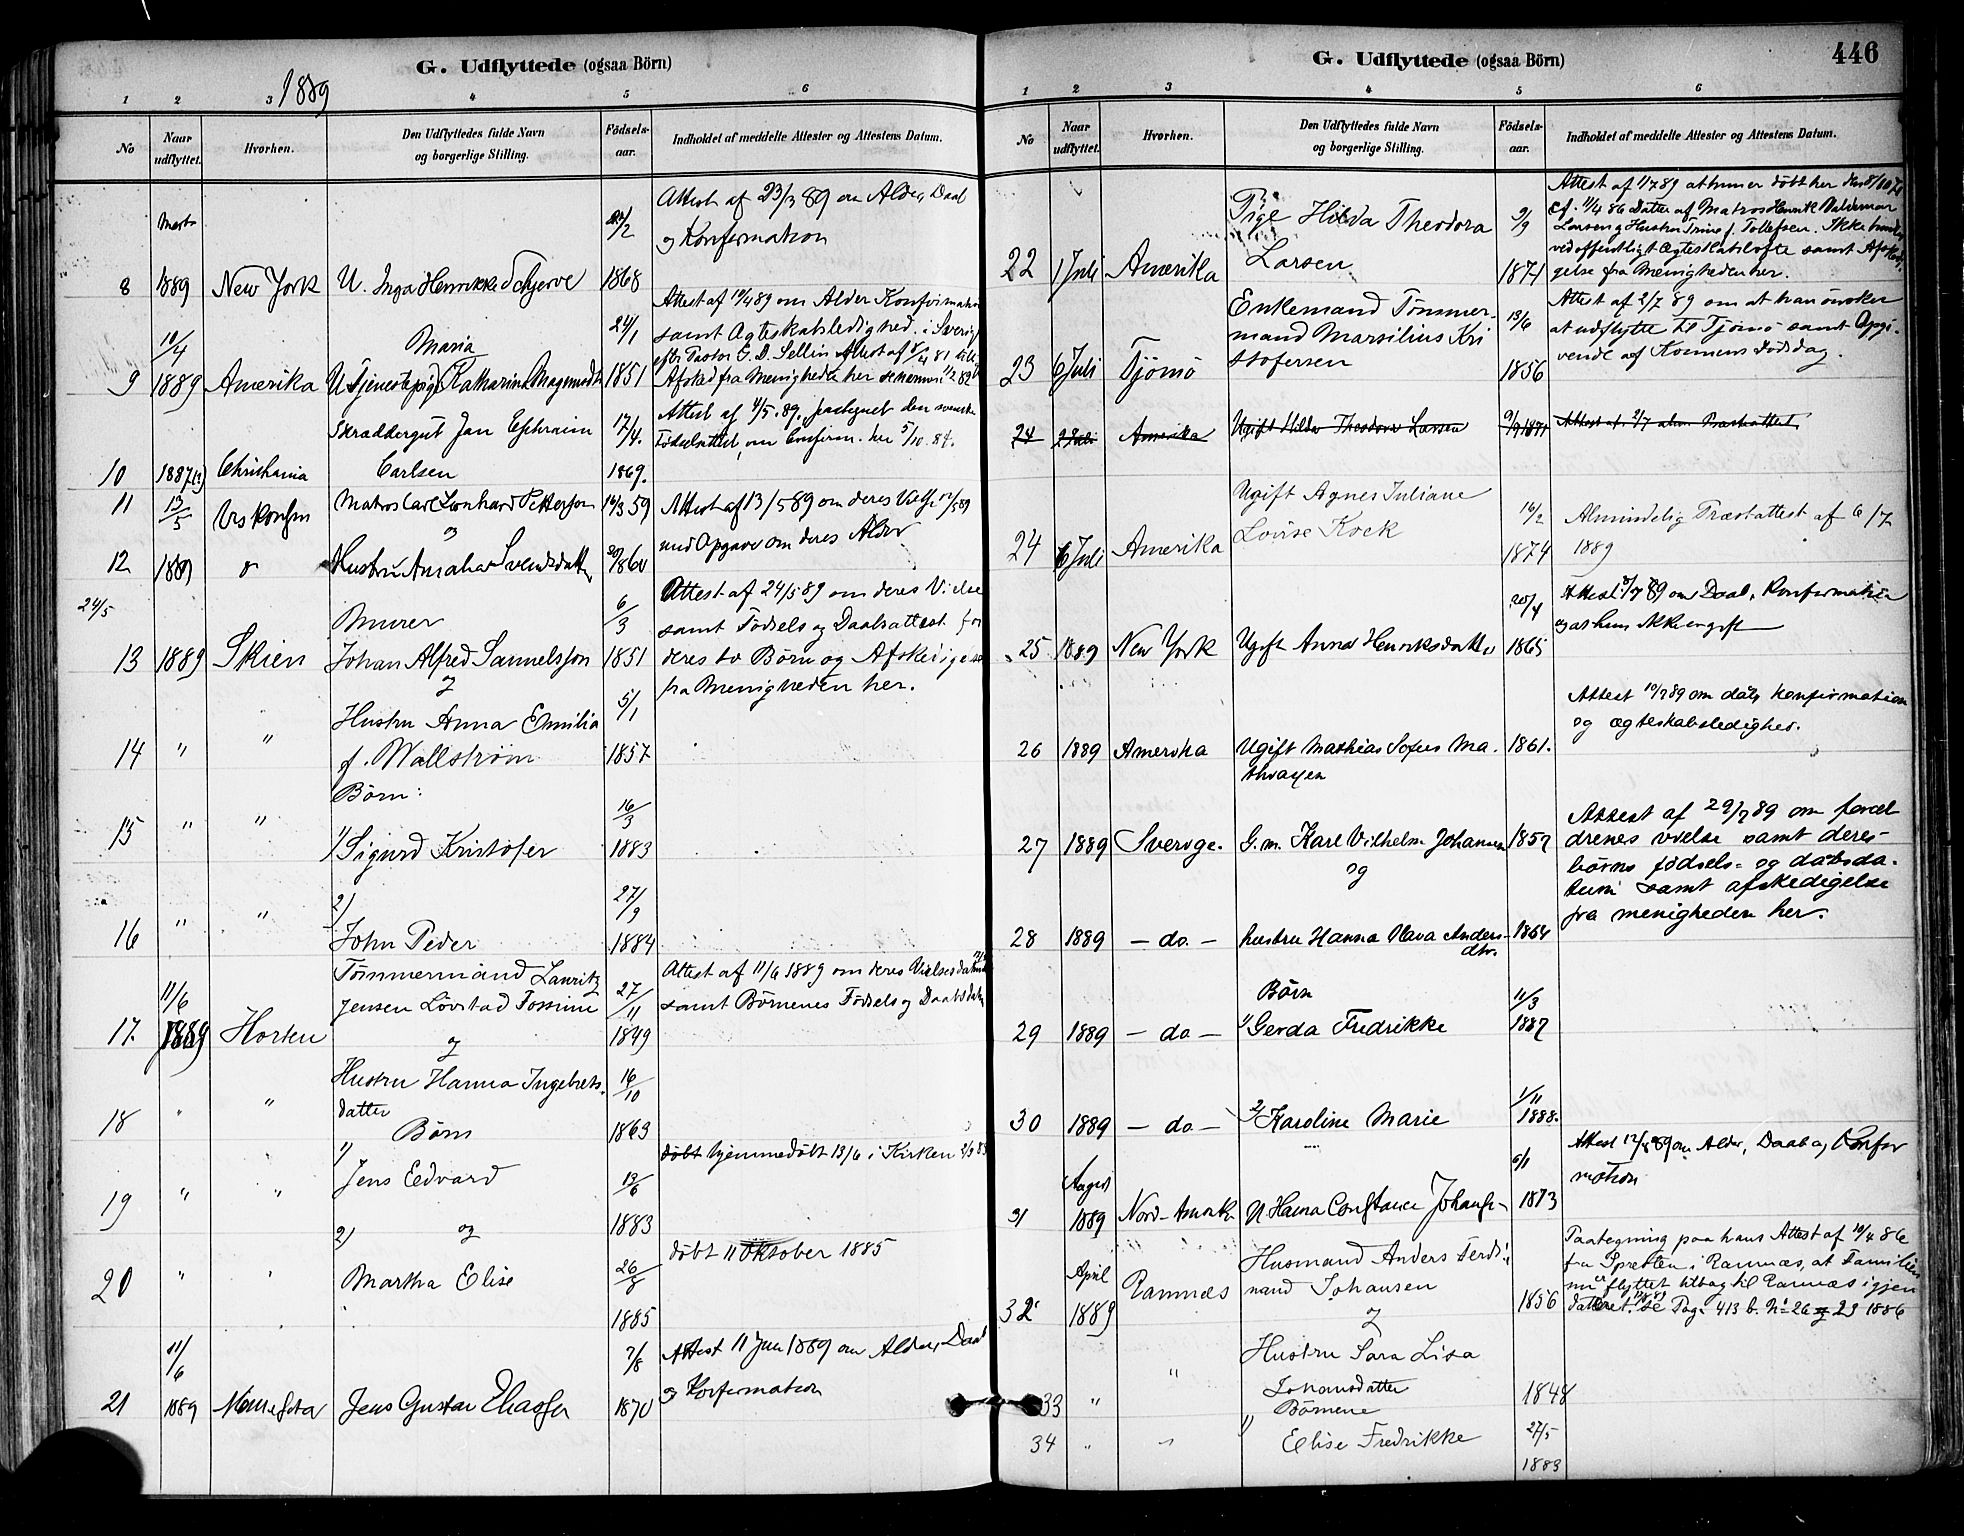 G. Udflyttede (ogsaa Börn)
1889
1 2 3 4 5 6
No
Naar udflyttet.
Hvorhen.
Den Udflyttedes fulde Navn og borgerlige Stilling.
Födsels-aar.
Indholdet af meddelte Attester og Attestens Datum.
Marts
8 1889 New York U. Inga Henrikke 1868
Attest af 23/3 89 om Alder, Daab
og Konfirmation
10/4
9 1889 Amerika U. Tjenestepige Maria Katharina 24/1 1851
Attest af 10/4 89 om Alder Konfirmation
samt Ægteskabsledighed i Sverig
Afsked fra Menigheden her
10 1887 Christiania Skræddergut Jan Ephraim
Carlsen 17/4. 1869.
Attest af 4/5. 89, paategnet den svenske
Födselsattest, om Confirm. her 5/10. 84.
11 13/5 Matros Carl Leonhard Pettersen 14/3 59
og
Attest af 13/5 89 om deres Vielse 12/5 89
med Opgave om deres Alder
12 1889 Hustru Svendsdatter
24/5
13 1889 Skien Murer
Johan Alfred Samuelsson 6/3 1851
og
Attest af 24/5 89 om deres Vielse
samt Födsels og Daabsattest for
deres to Börn og Afskedigelse
fra Menigheden her.
14 " " Hustru Anna Emilia
f. Wallström 5/1 1857
Börn:
15 " " 1) Sigurd Kristofer 16/3 1883
16 " " 2) John Peder 27/9 1884
11/6
17. 1889 Horten Tömmermand Lauritz
Jensen Lövstad 27/11 1849
og
Attest af 11/6 1889 om deres Vielsesdatum
samt Börnenes Födsels og Daabsdatum
18 " " Hustru Hanna Ingebrets-
datter 16/10 1863
Börn
19 " " 1) Jens Edvard 13/6 1883
döbt hjemmedöbt 13/6 i Kirken 2/9 83
og
20 " " 2) Martha Elise 26/8 1885
döbt 11 Oktober 1885
11/6
21 1889 Jens Gustav 7/8 1870
Attest 11 Juni 1889 om Alder, Daab
og Konfirmation
G. Udflyttede (ogsaa Börn)
446
1 2 3 4 5 6
No
Naar udflyttet.
Hvorhen.
Den Udflyttedes fulde Navn og borgerlige Stilling.
Födsels-aar.
Indholdet af meddelte Attester og Attestens Datum.
22 1 Juli Amerika Pige Hilda Theodora
Larsen 9/9 1871
Attest af 1/7 89 at hun er döbt her den 8/10 71
cf. 11/4 86 Datter af Matros Henrik Valdemar
Larsen og Hustru Trine f. Tollefsen. Ikke bunden
ved offentligt Ægteskabslöfte samt Afskedi-
gelse fra Menigheden her.
23 6 Juli Tjömö Enkemand Tömmer-
mand Marsilius Kri
stofersen 13/6 1856
Attest af 2/7 89 om at han önsker
at udflytte til Tjömö samt Opgi-
vende af Konens Dödsdag.
24 2 Juli Amerika Ugift Hilda Theodora Larsen 9/9 1871 Attest af 2/7 alm. Præstattest
24 6 Juli Amerika Ugift Agnes Juliane
Lovise Kock 16/2 1874
Almindelig Præstattest af 6/7
1889
25 1889 New York Ugift Anna Henriksdatter 20/4 1865
Attest 8/7 89 om Daab, Konfirmation
og at hun ikke er gift
26 1889 Amerika Ugift Mathias Sofus Ma- 1861.
Attest 10/7 89 om daab, konfirmation
og ægteskabsledighed.
27 1889 Sverige. G. m. Karl Vilhelm Johansen 1857
og
Attest af 29/7 89 om foræl
drenes vielse samt deres
börns födsels- og daabsda-
tum samt afskedigelse
fra menigheden her.
28 1889 — do. — hustru Hanna Anders-
dtr. 1864
Börn
29 1889 — do — 1) Gerda Fredrikke 11/3 1887
30 1889 — do — 2) Karoline Marie 1/11 1888.
August
31 1889 Nord-Amerika U. Hanna Constance 6/1 1873
Attest 12/8 89 om Alder, Daab og Konfir
mation
April
32 1889 Ramnæs Husmand Anders Ferdi-
nand Johansen 1856
og
Paategning paa hans Attest af 10/4 86
fra Presten i Ramnæs, at Familien
nu er flyttet tilbag til Ramnæs igjen
Pag. 413 b. No 26 29 1886
33 " " Hustru Sara Lisa
Johansdatter 1848
Börnene
34 " " 1) Elise Fredrikke 27/5 1883